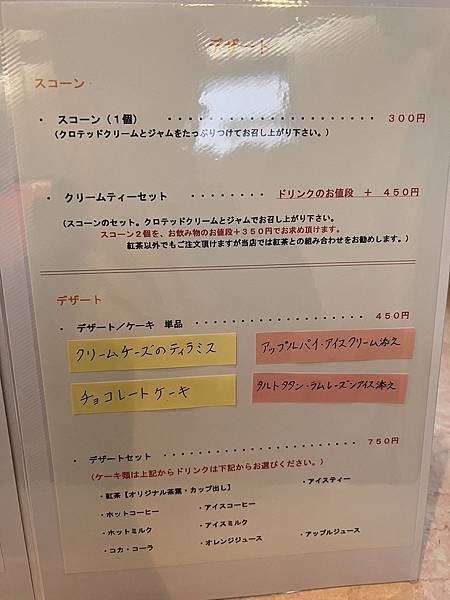 デザート
スコーン
・ スコーン（１個） ・・・・・・・・・・・・・・・・・・・・・・ ３００円
（クロテッドクリームとジャムをたっぷりつけてお召し上がり下さい。）
・ クリームティーセット ・・・・・・・・ ドリンクのお値段 ＋ ４５０円
（スコーンのセット。クロテッドクリームとジャムでお召し上がり下さい。
スコーン２個を、お飲み物のお値段＋３５０円でお求め頂けます。
紅茶以外でもご注文頂けますが当店では紅茶との組み合わせをお勧めします。）
デザート
・ デザート／ケーキ 単品 ・・・・・・・・・・・・・・・・・・ ４５０円
クリームチーズのティラミス
アップルパイ・アイスクリーム添え
チョコレートケーキ
タルトタタン・ラムレーズンアイス添え
・ デザートセット ・・・・・・・・・・・・・・・・・・・・・・ ７５０円
（ケーキ類は上記からドリンクは下記からお選びください。）
・紅茶【オリジナル茶葉・カップ出し】 ・アイスティー
・ホットコーヒー ・アイスコーヒー
・ホットミルク ・アイスミルク
・コカ・コーラ ・オレンジジュース ・アップルジュース